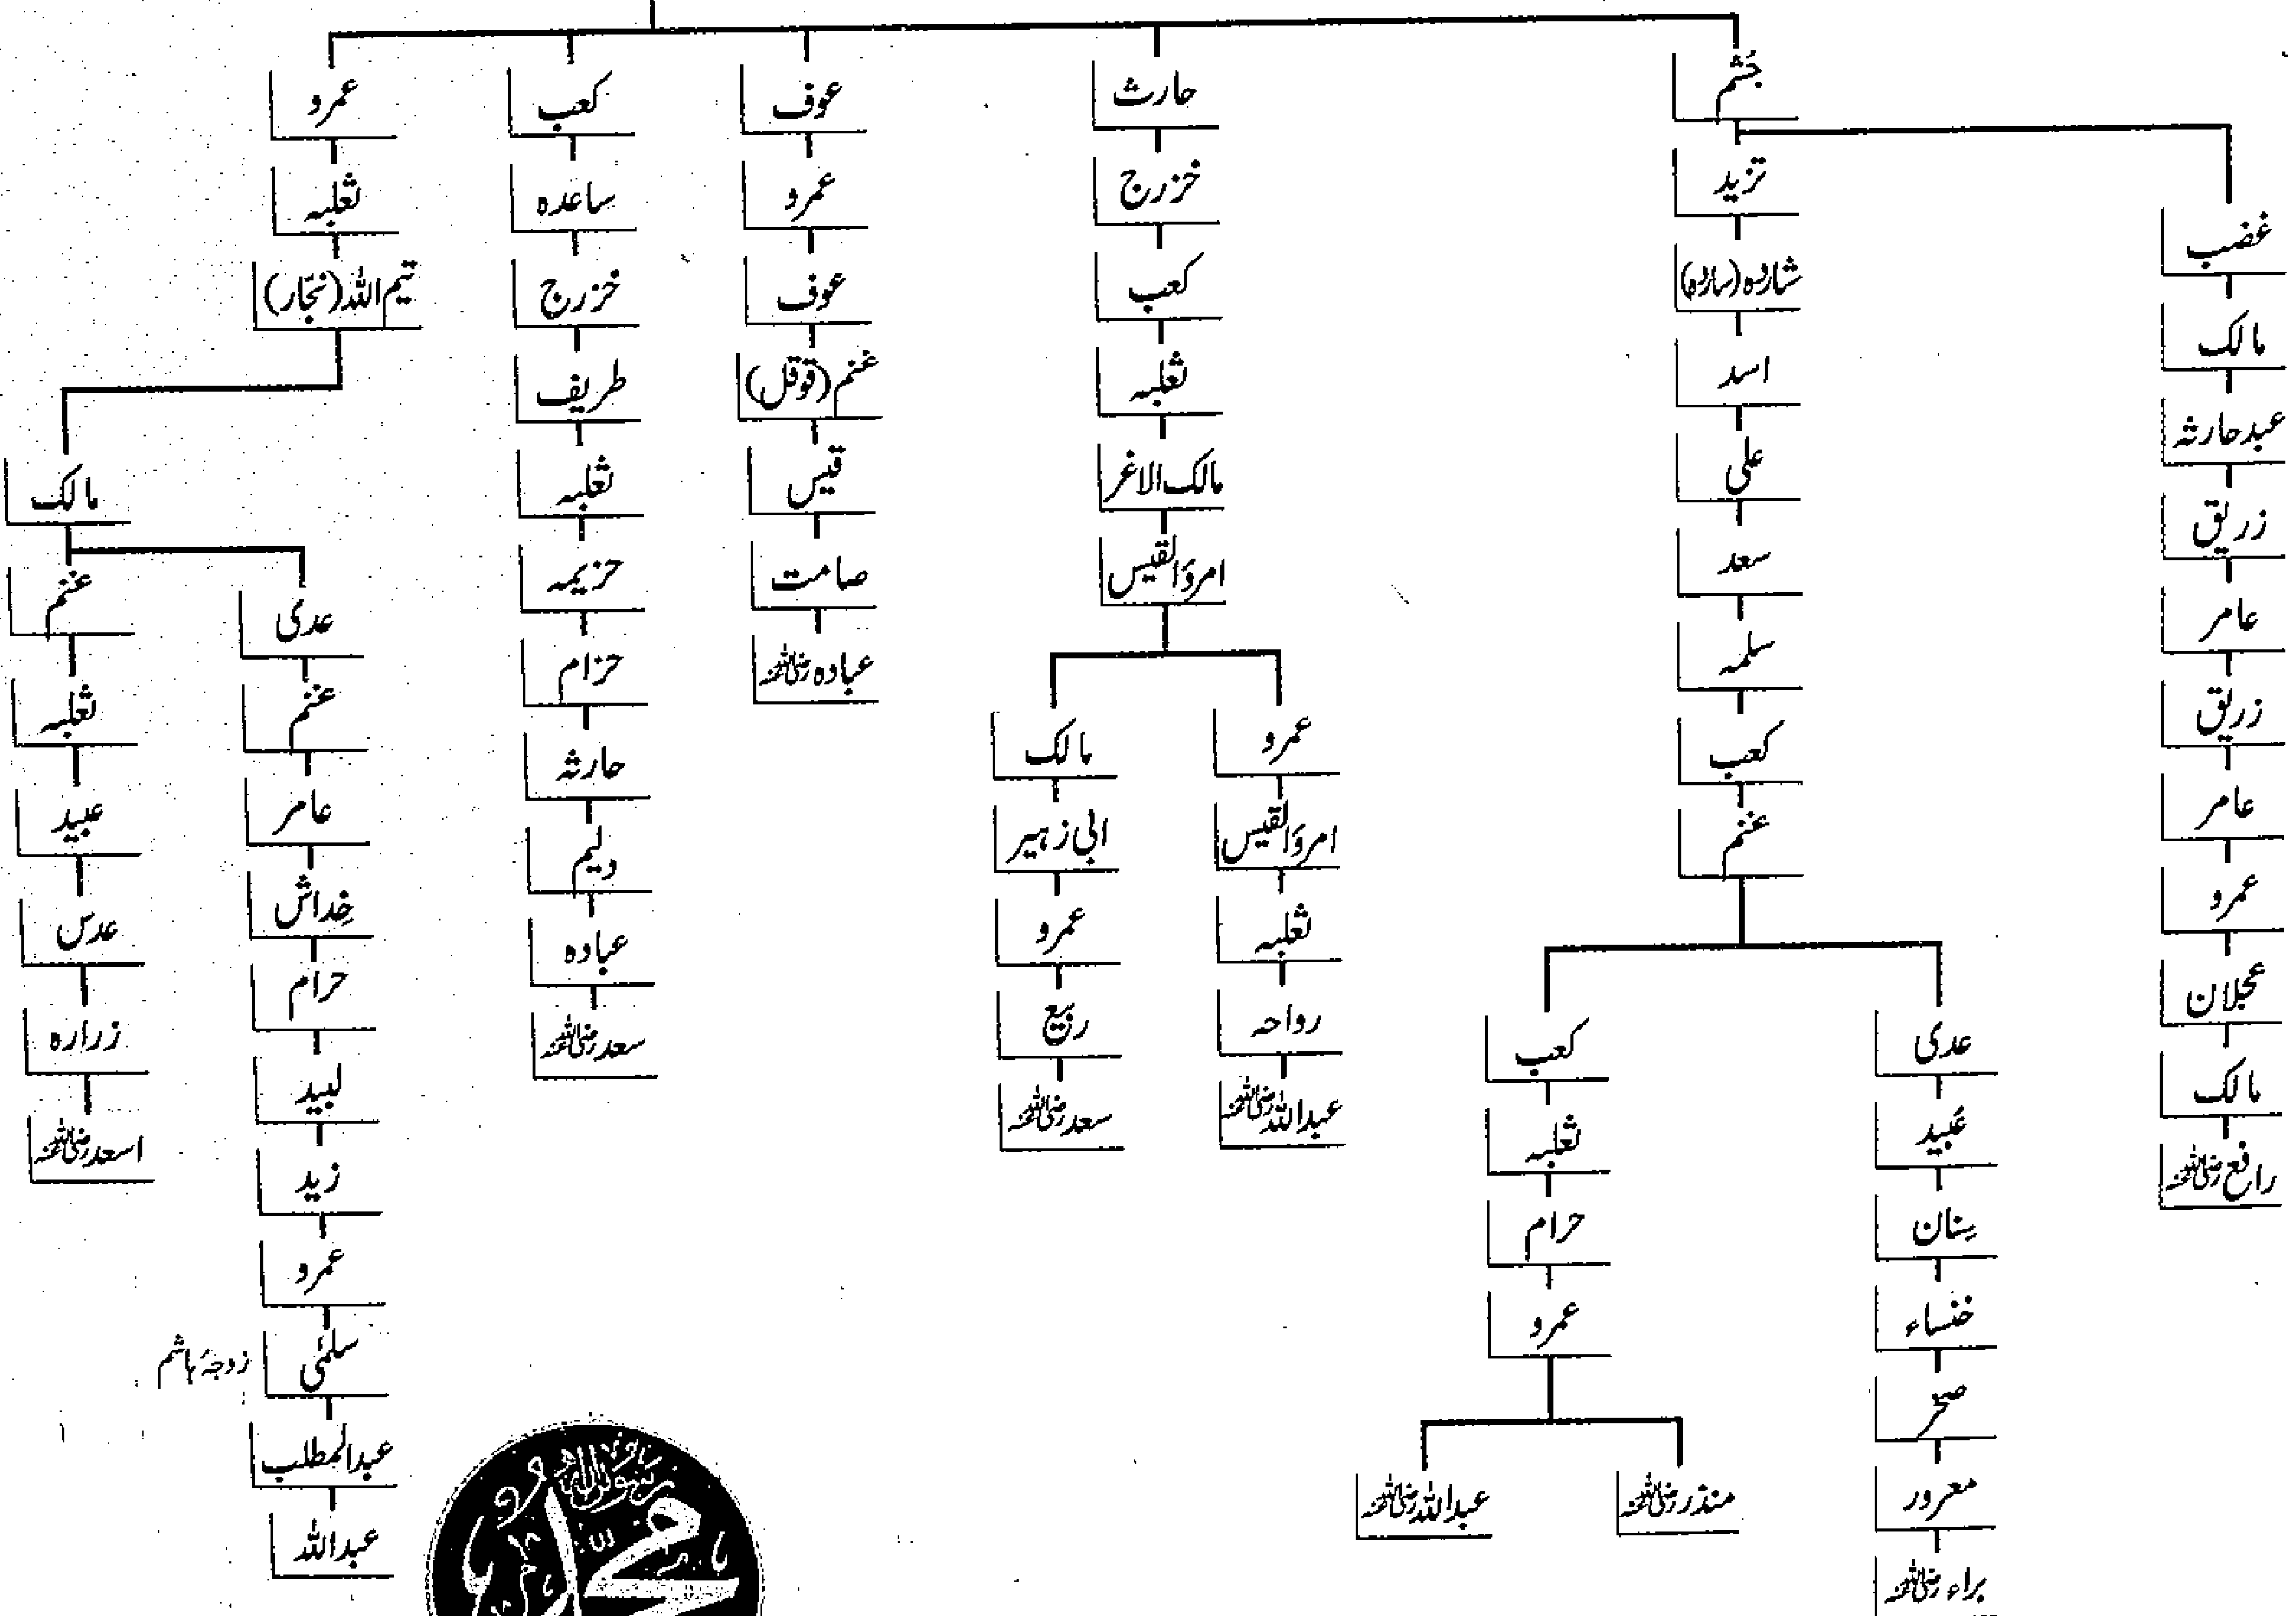 جشم
تزید
شاردہ (ساردہ)
اسد
علی
سعد
سلمہ
کعب
غنم
غضب
مالک
عبد حارثہ
زریق
عامر
زریق
عامر
عمرو
عجلان
مالک
رافع رضی اللہ عنہ
عدی
عبید
سِنان
خنساء
صخر
معرور
براء رضی اللہ عنہ
کعب
ثعلبہ
حرام
عمرو
منذر رضی اللہ عنہ
عبداللہ رضی اللہ عنہ
حارث
خزرج
کعب
ثعلبہ
مالک الاغر
امرؤالقیس
عمرو
امرؤالقیس
ثعلبہ
رواحہ
عبداللہ رضی اللہ عنہ
مالک
ابی زہیر
عمرو
ربیع
سعد رضی اللہ عنہ
عوف
عمرو
عوف
غنم (قوقل)
قیس
صامت
عبادہ رضی اللہ عنہ
کعب
ساعدہ
خزرج
طریف
ثعلبہ
حزیمہ
حزام
حارثہ
دلیم
عبادہ
سعد رضی اللہ عنہ
عمرو
ثعلبہ
تیم اللہ (نجّار)
مالک
عدی
غنم
عامر
خِداش
حرام
لبید
زید
عمرو
سلمٰی زوجۂ ہاشم
عبدالمطلب
عبداللہ
غنم
ثعلبہ
عبید
عدس
زرارہ
اسعد رضی اللہ عنہ